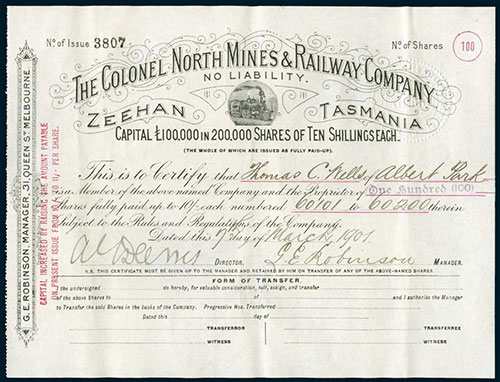 No. of Issue 3807. No. of Shares 100
THE COLONEL NORTH MINES & RAILWAY COMPANY
NO LIABILITY.
ZEEHAN TASMANIA
CAPITAL £100,000 IN 200,000 SHARES OF TEN SHILLINGS EACH.
(THE WHOLE OF WHICH ARE ISSUED AS FULLY PAID-UP).
This is to Certify that Thomas C. Wells of Albert Park
is a Member of the above named Company and the Proprietor of One Hundred (100)
Shares fully paid up to 10/- each numbered 60101 to 60200 therein
Subject to the Rules and Regulations of the Company.
Dated this day of March 1901.
DIRECTOR. G E Robinson MANAGER.
N.B. THIS CERTIFICATE MUST BE GIVEN UP TO THE MANAGER AND RETAINED BY HIM ON TRANSFER OF ANY OF THE ABOVE-NAMED SHARES.
FORM OF TRANSFER.
the undersigned do hereby, for valuable consideration, sell, assign, and transfer
of the above Shares to of and I authorise the Manager
to Transfer the said Shares in the books of the Company. Progressive Nos. Transferred
Dated this day of
TRANSFEROR TRANSFEREE
WITNESS WITNESS
G. E. ROBINSON, MANAGER, 31 QUEEN ST MELBOURNE.
CAPITAL INCREASED BY RAISING THE AMOUNT PAYABLE
ON PRESENT ISSUE FROM TO PER SHARE.